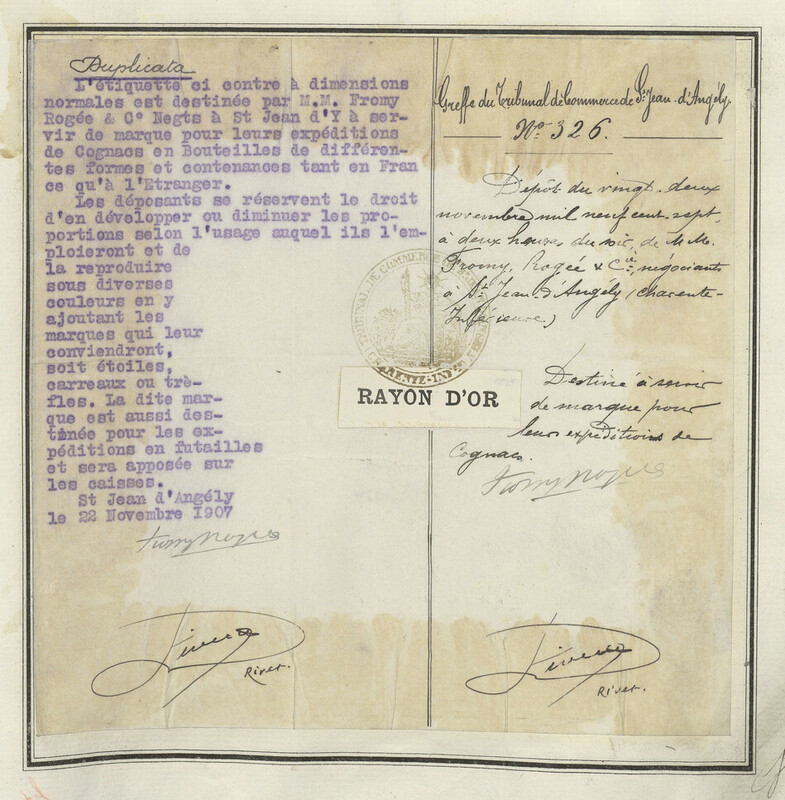 Duplicata
L'étiquette ci contre à dimensions
normales est destinée par M.M. Fromy
Rogée & Cº Negts à St Jean d'Y à ser-
vir de marque pour leurs expéditions
de Cognacs en Bouteilles de différen-
tes formes et contenances tant en Fran
ce qu'à l'Etranger.
Les déposants se réservent le droit
d'en développer ou diminuer les pro-
portions selon l'usage auquel ils l'em-
ploieront et de
la reproduire
sous diverses
couleurs en y
ajoutant les
marques qui leur
conviendront,
soit étoiles,
carreaux ou trè-
fles. La dite mar-
que est aussi des-
tinée pour les ex-
péditions en futailles
et sera apposée sur
les caisses.
St Jean d'Angély
le 22 Novembre 1907
Fromy Rogée
Rivet.
RAYON D'OR
Greffe du Tribunal de Commerce de St Jean-d'Angély.
Nº 326.
Dépôt du vingt-deux
novembre mil neuf cent sept,
à deux heures du soir, de M.M.
Fromy, Rogée & Cie, négociants
à St Jean-d'Angély (Charente-
Inférieure.)
Destiné à servir
de marque pour
leurs expéditions de
Cognacs.
Fromy Rogée
Rivet.